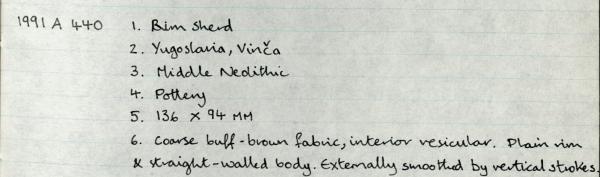 1991 A 440 1. Rim sherd
2. Yugoslavia, Vinča
3. Middle Neolithic
4. Pottery
5. 136 x 94 MM
6. Coarse buff-brown fabric, interior vesicular. Plain rim
& straight-walled body. Externally smoothed by vertical strokes.